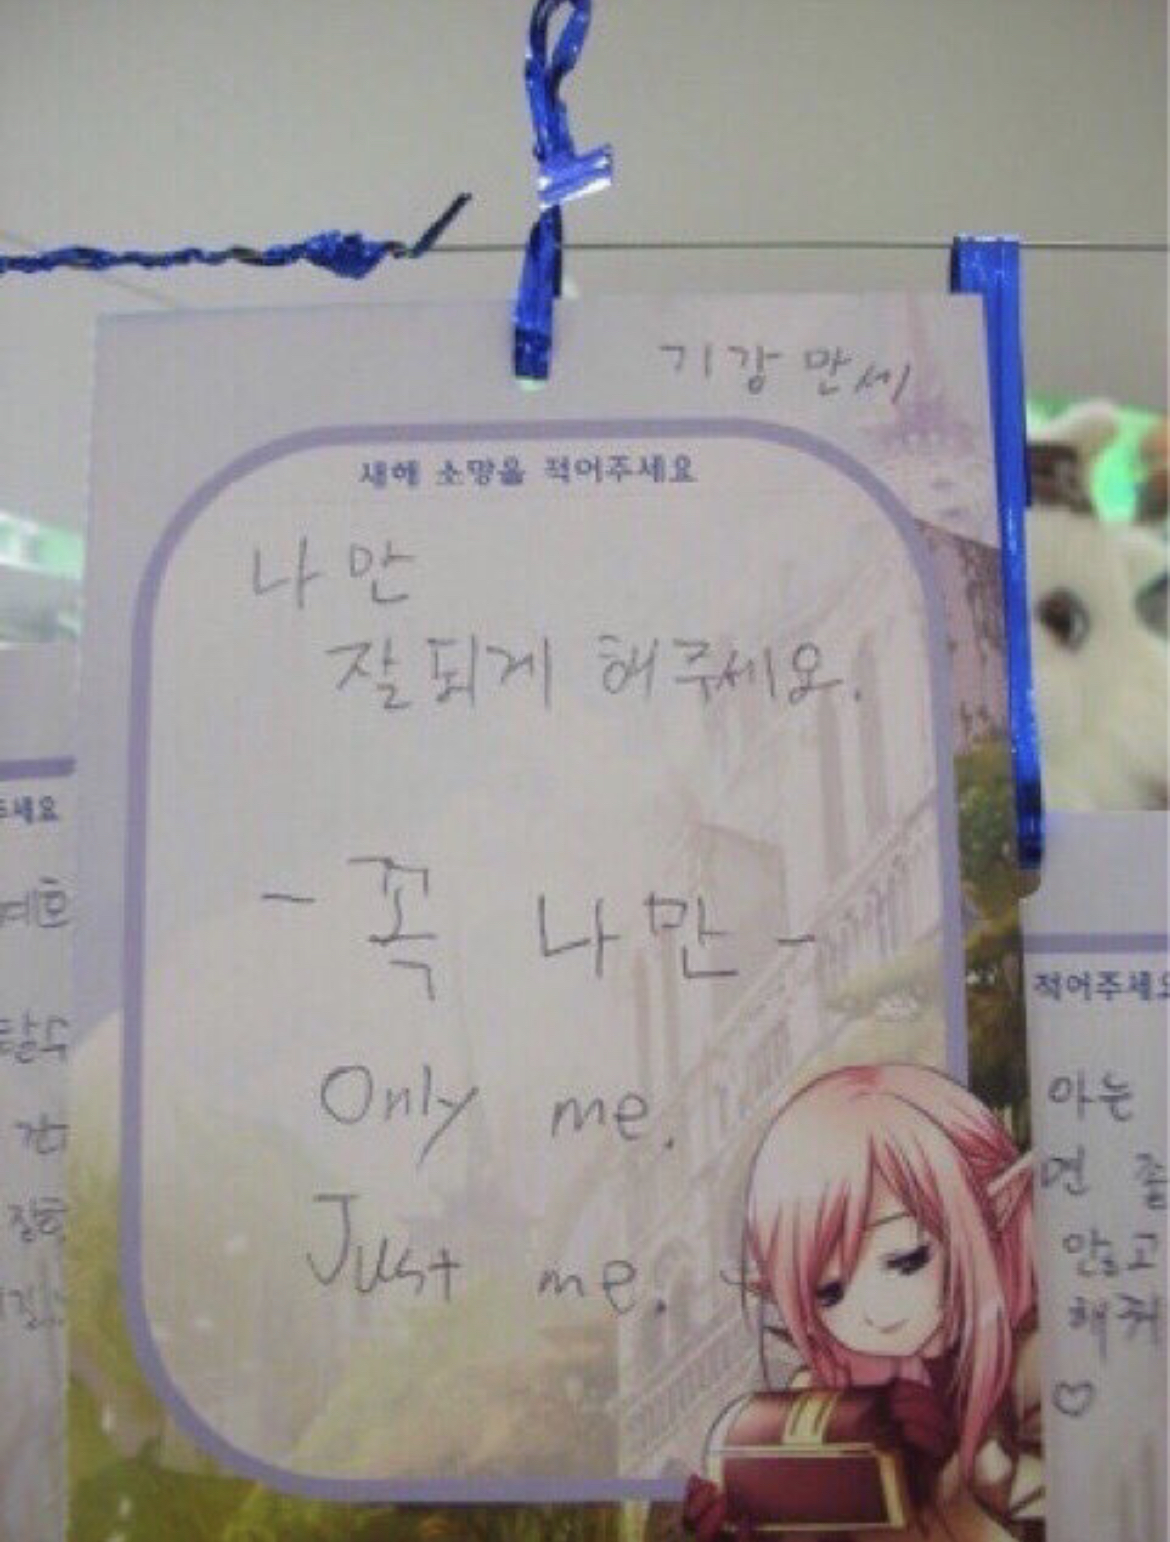 기강 만세
새해 소망을 적어주세요
나만
잘되게 해주세요.
- 꼭 나만 -
Only me.
Just me.
적어주세요
아는
면
않고
해줘
♡